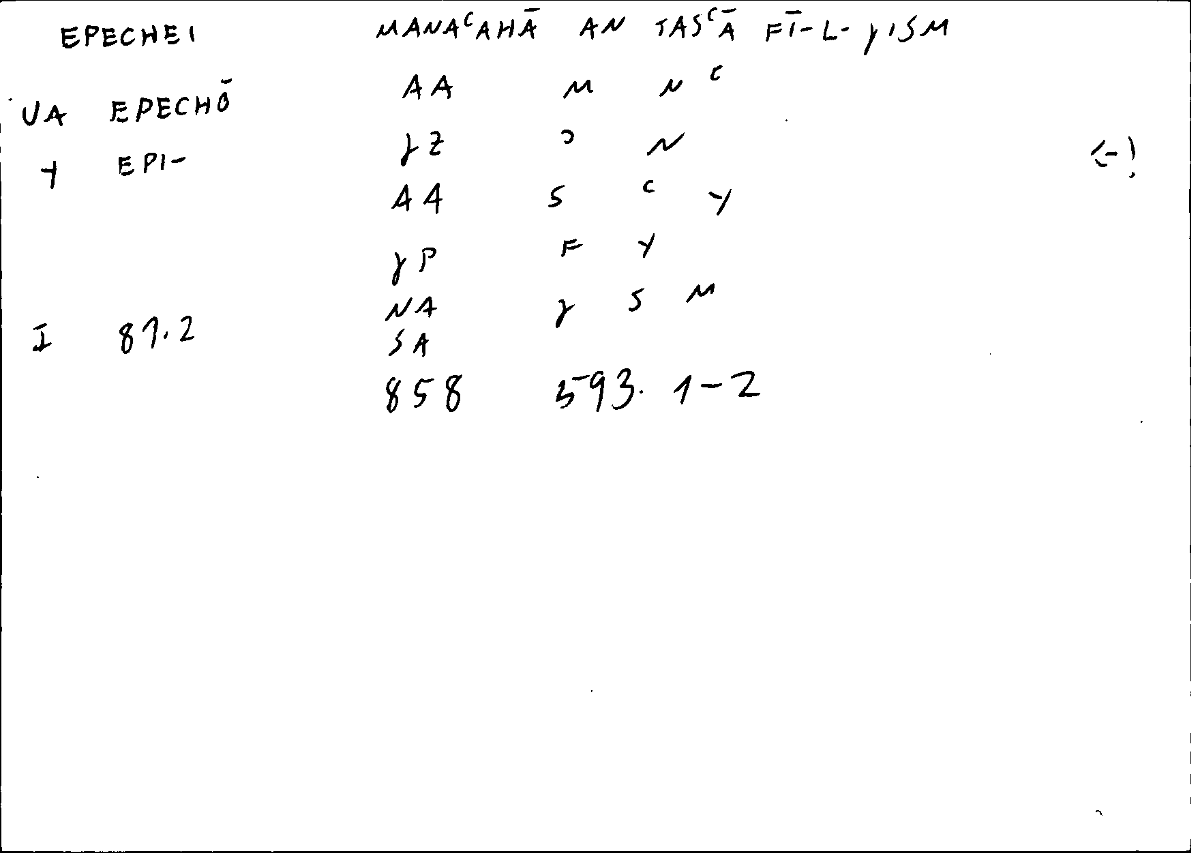 EPECHEI MANAᶜAHĀ AN TASᶜĀ FĪ-L-ɣISM
UA EPECHŌ AA M N ᶜ
Y EPI- ɣZ Ɔ N <-!
AA S ᶜ Y
ɣP F Y
NA ɣ S M
I 87.2 SA
858 593. 1-2